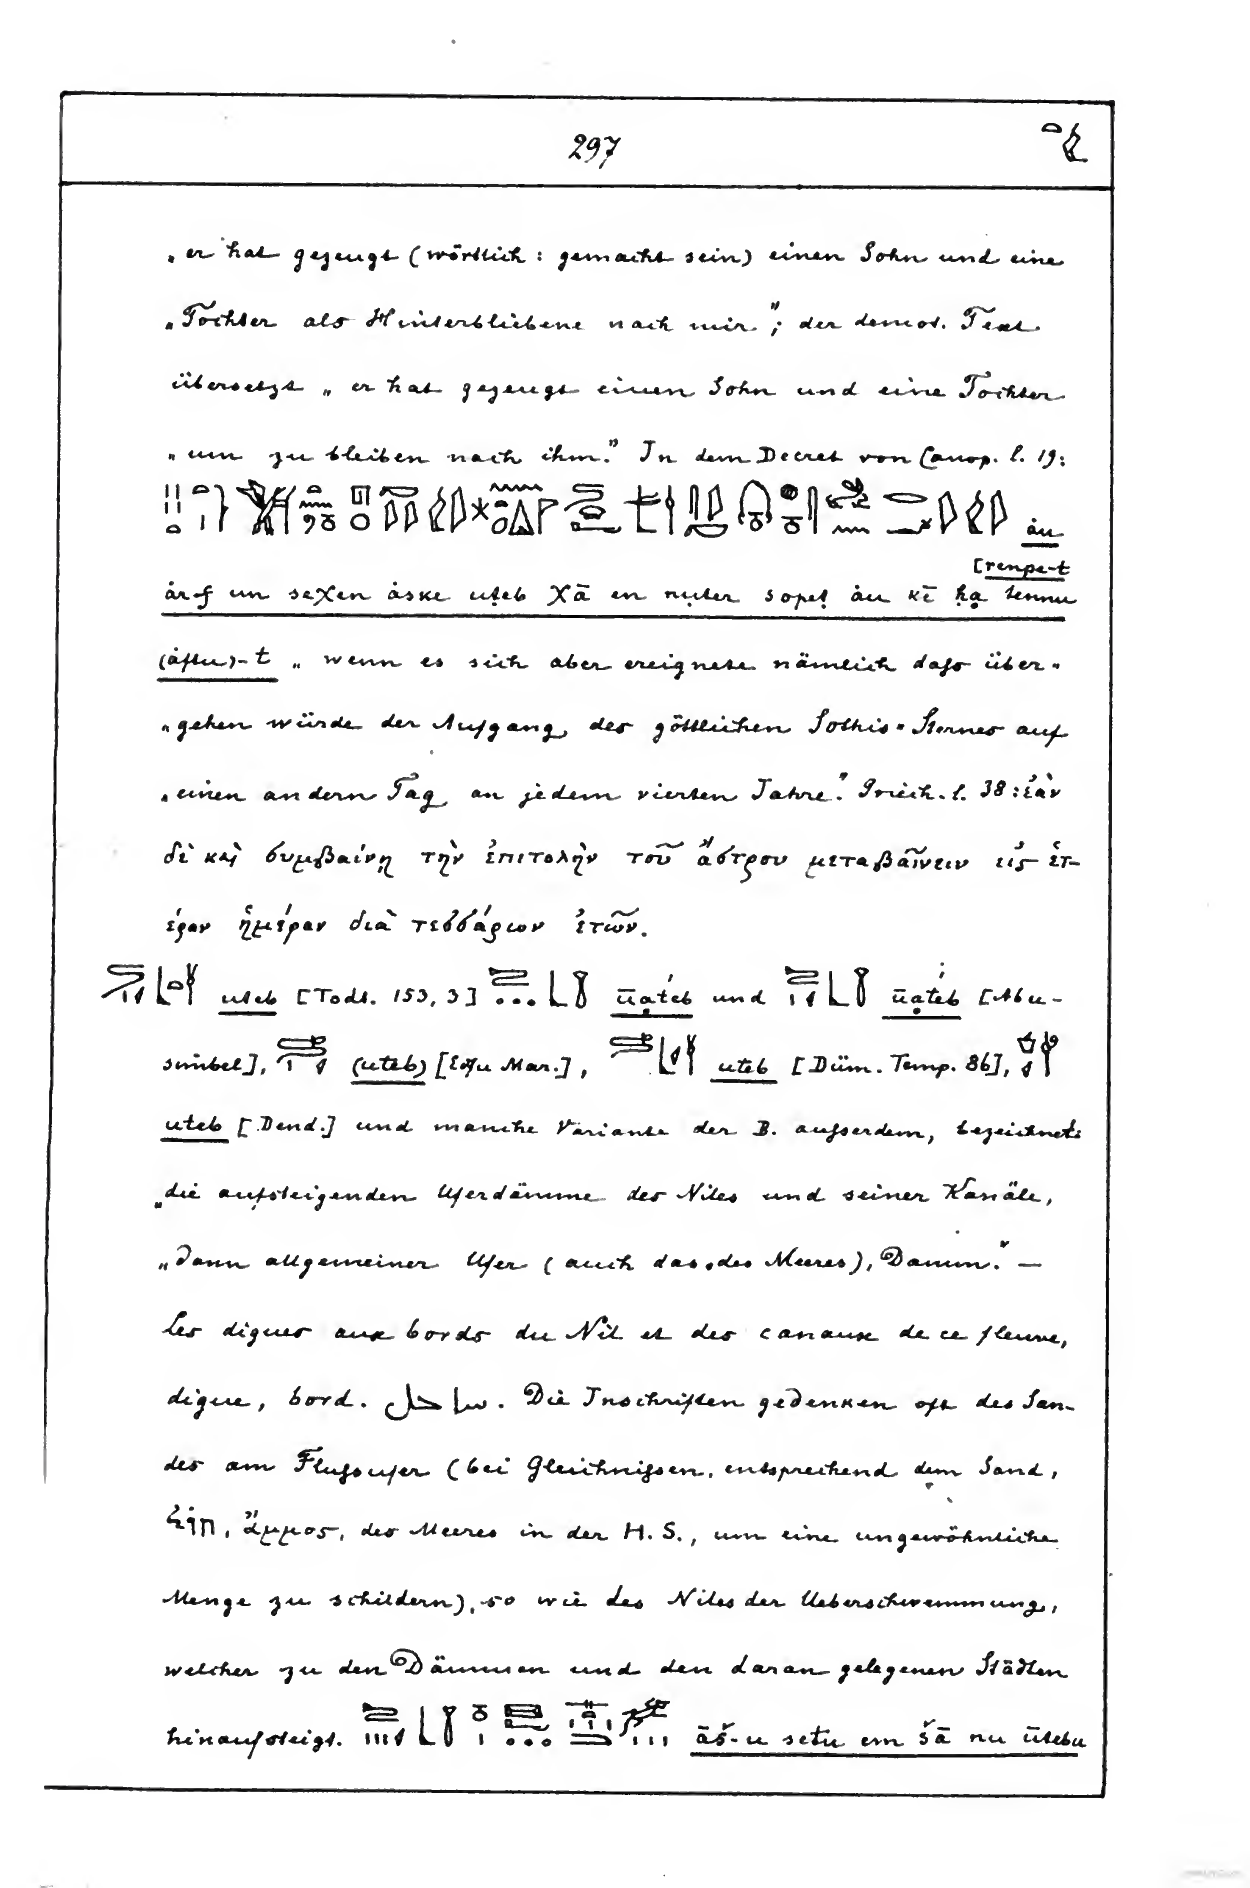 297
„er hat gezeugt (wörtlich: gemacht sein) einen Sohn und eine
„Tochter als Hinterbliebene nach mir."; der demot. Text
übersetzt „er hat gezeugt einen Sohn und eine Tochter
„um zu bleiben nach ihm." In dem Decret von Canop. l. 19:
åu
[renpe-t
år-f un seχen åske uṭeb χā en nuter sopeṭ åu kē ḥa tennu
(åftu)-t „wenn es sich aber ereignete nämlich daſs über-
„gehen würde der Aufgang des göttlichen Sothis-Sternes auf
„einen andern Tag an jedem vierten Jahre." Griech. l. 38: ἐὰν
δὲ καὶ συμβαίνῃ τὴν ἐπιτολὴν τοῦ ἄστρου μεταβαῖνειν εἰς ἑτ-
έραν ἡμέραν διὰ τεσσάρων ἐτῶν.
uteb [Todt. 153, 3] ūạteb und ūạteb [Abu-
simbel], (uteb) [Edfu Mar.], uteb [Düm. Temp. 86],
uteb [Dend.] und manche Variante der B. auſserdem, bezeichnete
„die aufsteigenden Uferdämme des Niles und seiner Kanäle,
„dann allgemeiner Ufer (auch das des Meeres), Damm." —
Les digues aux bords du Nil et des canaux de ce fleuve,
digue, bord. ساحل. Die Inschriften gedenken oft des San-
des am Fluſsufer (bei Gleichniſsen, entsprechend dem Sand,
ἄμμος, des Meeres in der H. S., um eine ungewöhnliche
Menge zu schildern), so wie des Niles der Ueberschwemmung,
welcher zu den Dämmen und den daran gelegenen Städten
hinaufsteigt. āš-u setu em šā nu ūtebu